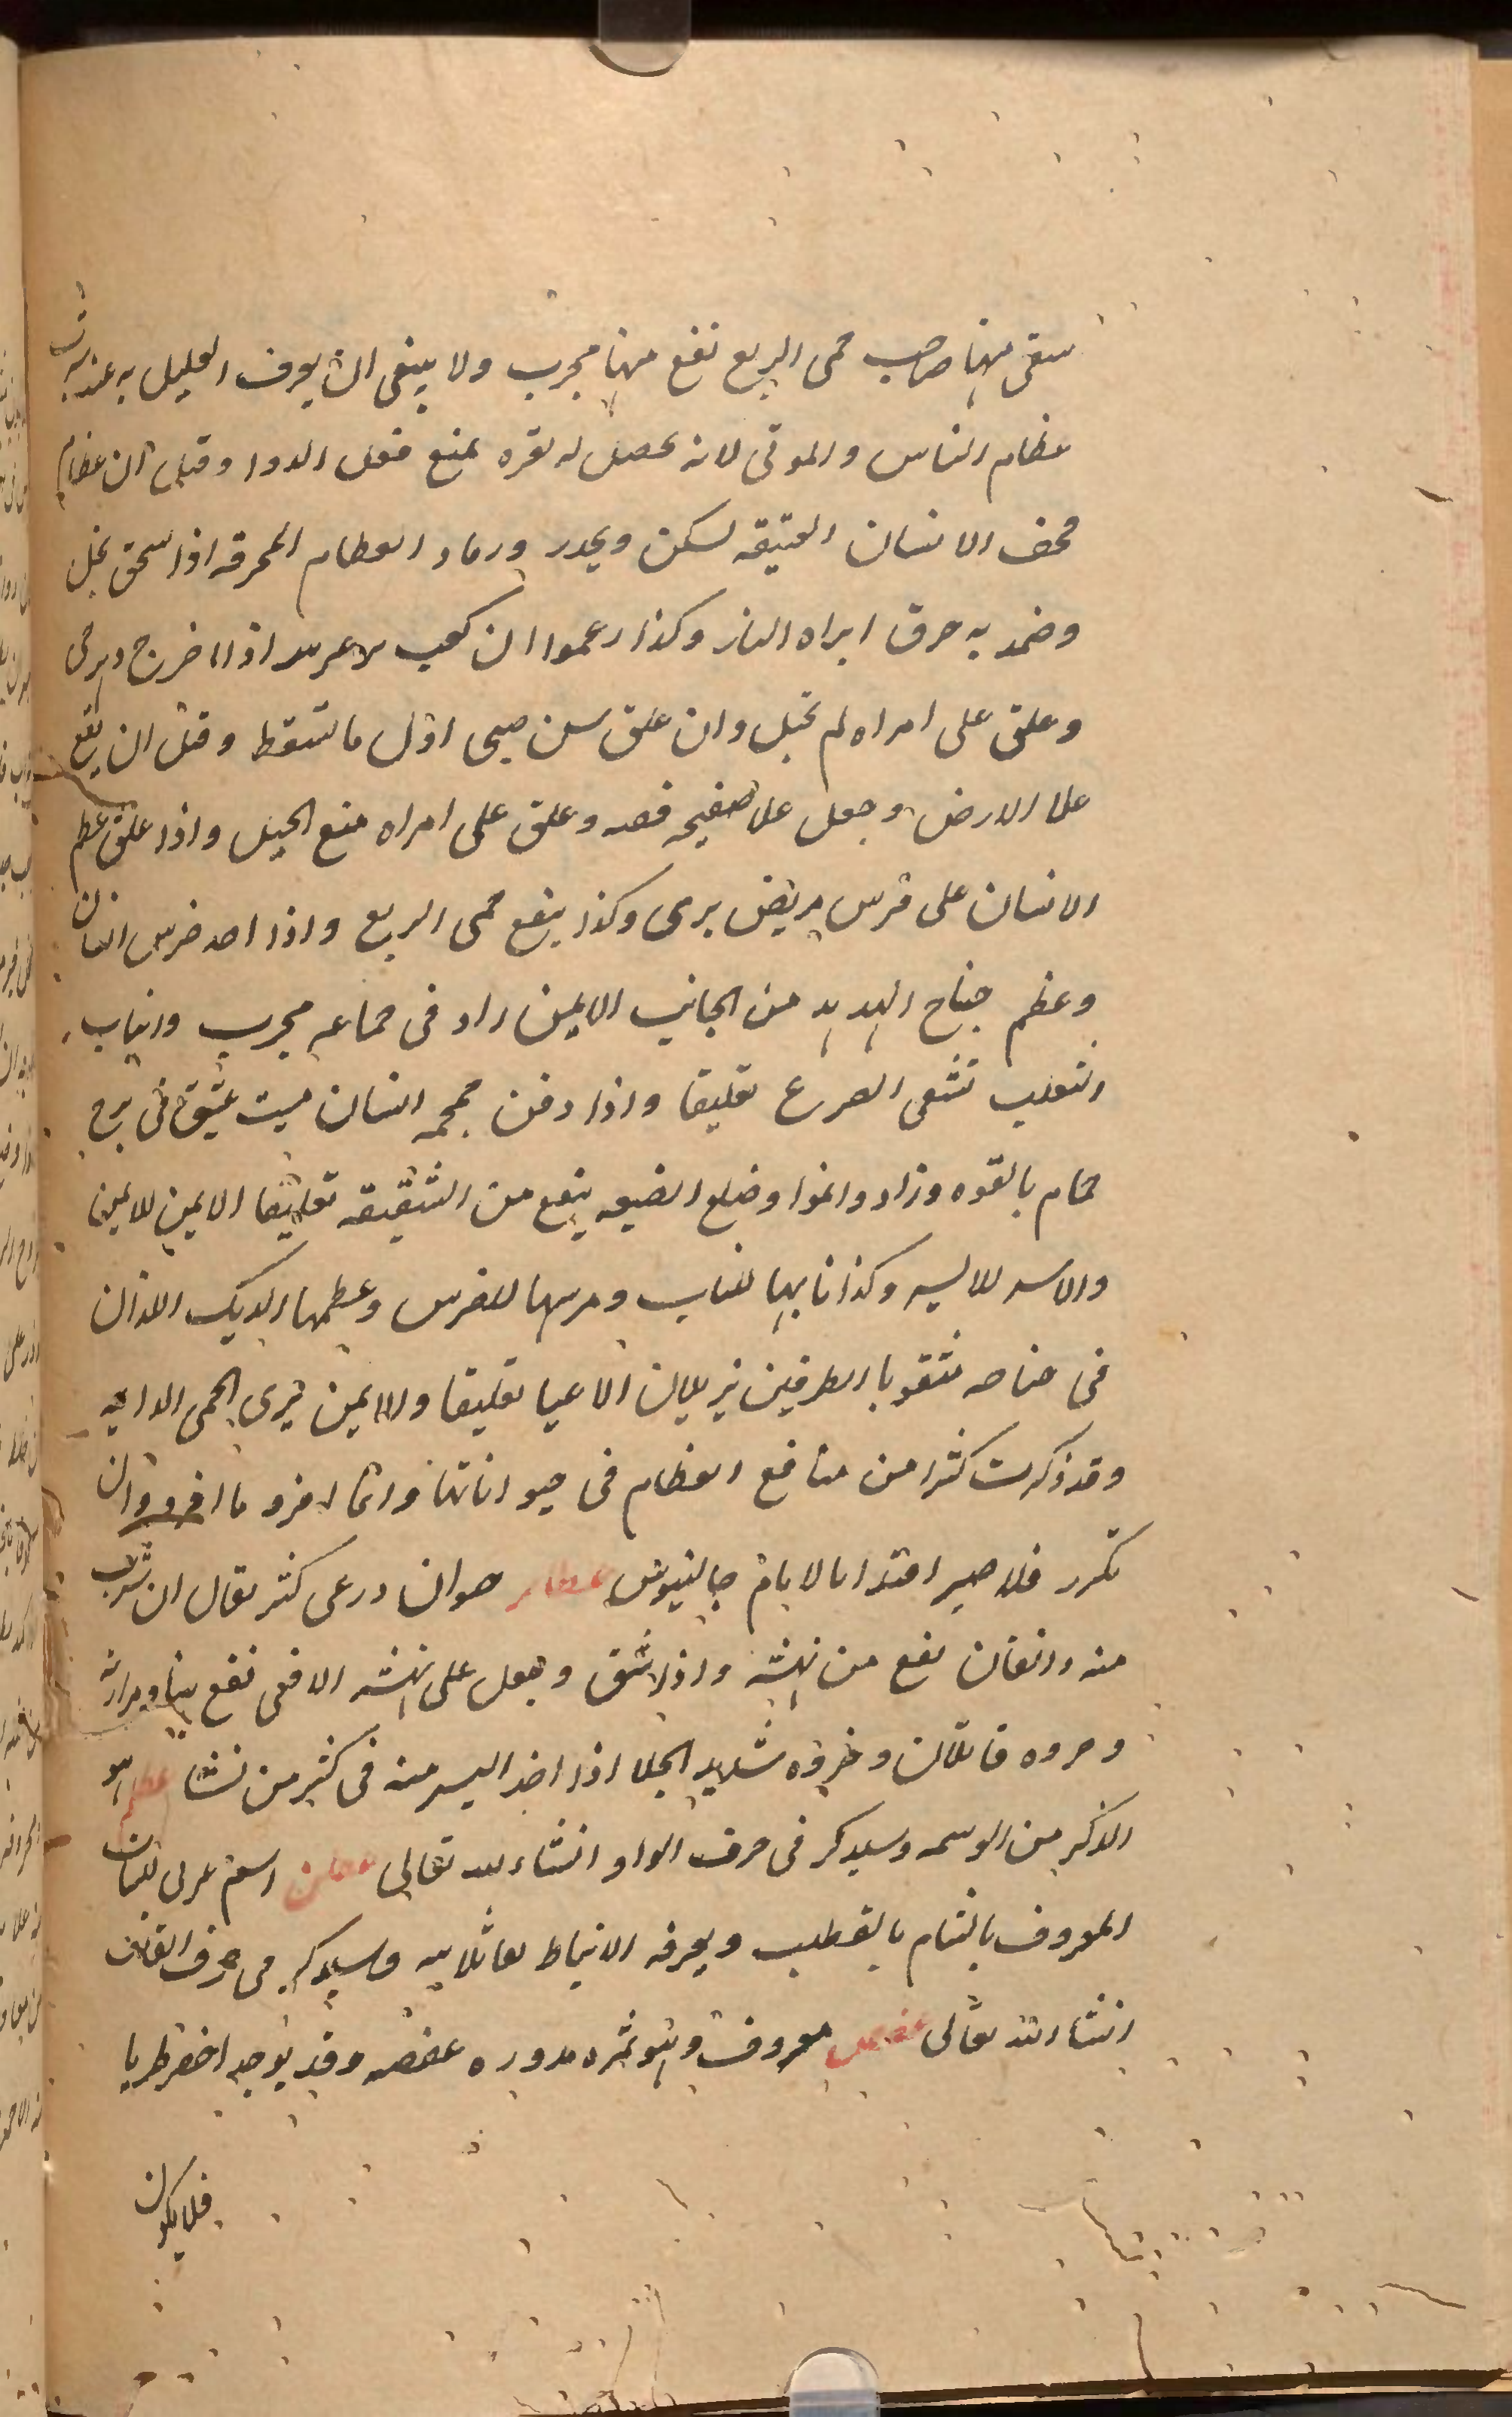 سقى منها صاحب حمى الربع نفع منها مجرب ولا ينبغى ان يعرف العليل به عند شرب
عظام الناس والموتى لانه يحصل له تقره يمنع فعل الدوا وقيل ان عظام
قحف الانسان العتيقه يسكن ويخدر ورماد العظام المحرقه اذا سحق بخل
وضمد به حرق ابراه النار وكذا زعموا ان كعب اذا اخرج وهو حى
وعلق على امراه لم تحبل وان علق سن صبى اول ما تسقط وقبل ان يقع
على الارض وجعل على صفيحه فضه وعلق على امراه منع الحبل واذا علق عظم
الانسان على فرس مريض برى وكذا ينفع حمى الربع واذا اخذ ضرس انسان
وعظم جناح الهدهد من الجانب الايمن زاد فى جماعه مجرب وانياب
الثعلب تشفى الصرع تعليقا واذا دفن جمجمه انسان ميت عتيق فى برج
حمام بالقوه وزاد وانموا وضلع الضبعه ينفع من الشقيقه تعليقا الايمن للايمن
والايسر للايسر وكذا نابها للناب وضرسها للضرس وعظمها الديك اللذان
فى جناحه مثقوبا الطرفين يزيلان الاعيا تعليقا والايمن يبرى الحمى الدائمه
وقد ذكرت كثيرا من منافع العظام فى حيواناتها وانما افرد ما افرد وان
تكرر فلا ضير اقتدا بالامام جالينوس عظام حيوان درعى كثر يقال ان شرب
منه دانقان نفع من نهشه واذا شق وجعل على نهشه الافعى نفع بينا ومرارته
وخروه قاتلان وخروه شديد الجلا اذا اخذ اليسير منه فى كثير من نشا عظلم هو
الذكر من الوسمه وسيذكر فى حرف الواو انشاء الله تعالى اسم عربى للنبات
المعروف بالشام بالقطلب ويعرفه الانباط وسيذكر فى حرف القاف
انشاء الله تعالى عفص معروف وهو ثمره مدوره عفصه وقد يوجد اخضر طريا
فلا يكون